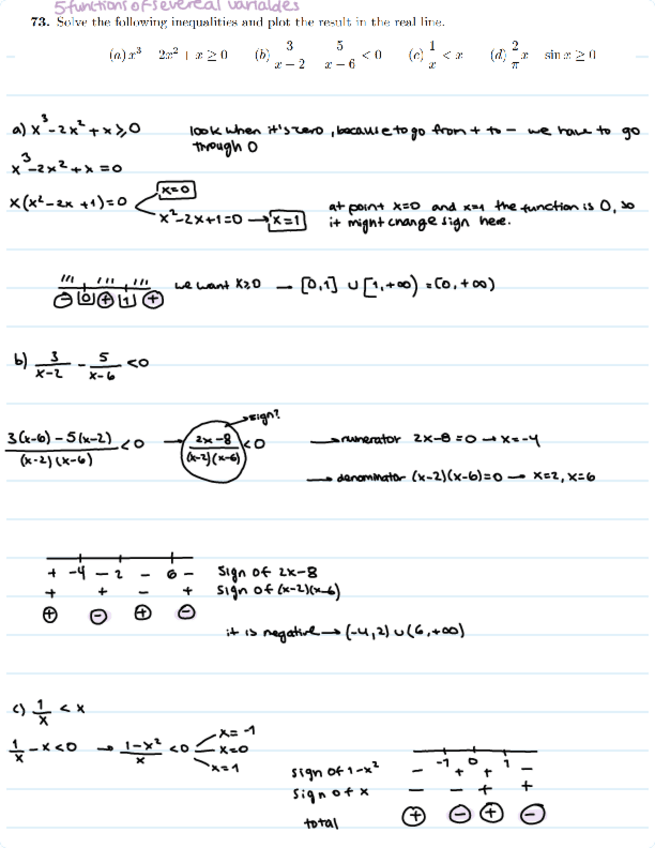 5 functions of severeal variables
73. Solve the following inequalities and plot the result in the real line.
(a) x³ 2x² + x ≥ 0 (b) 3/(x − 2) 5/(x − 6) < 0 (c) 1/x < x (d) 2/π x sin x ≥ 0
a) x³-2x²+x≥0 look when it's zero, because to go from + to - we have to go
through 0
x³-2x²+x=0
x(x²-2x+1)=0 x=0
x²-2x+1=0 → x=1
at point x=0 and x=1 the function is 0, so
it might change sign here.
- 0 + 1 + we want x≥0 → [0,1] ∪ [1,+∞) = [0,+∞)
b) 3/(x-2) - 5/(x-6) <0
sign?
(3(x-6)-5(x-2))/((x-2)(x-6)) <0 → (2x-8)/((x-2)(x-6)) <0 → numerator 2x-8=0 → x=-4
→ denominator (x-2)(x-6)=0 → x=2, x=6
+ -4 - 2 - 6 - sign of 2x-8
+ + - + sign of (x-2)(x-6)
+ - + -
it is negative → (-4,2) ∪ (6,+∞)
c) 1/x < x
1/x - x<0 → (1-x²)/x <0 x=-1
x=0
x=1
-1 0 1
sign of 1-x² - + + -
sign of x - - + +
total + - + -